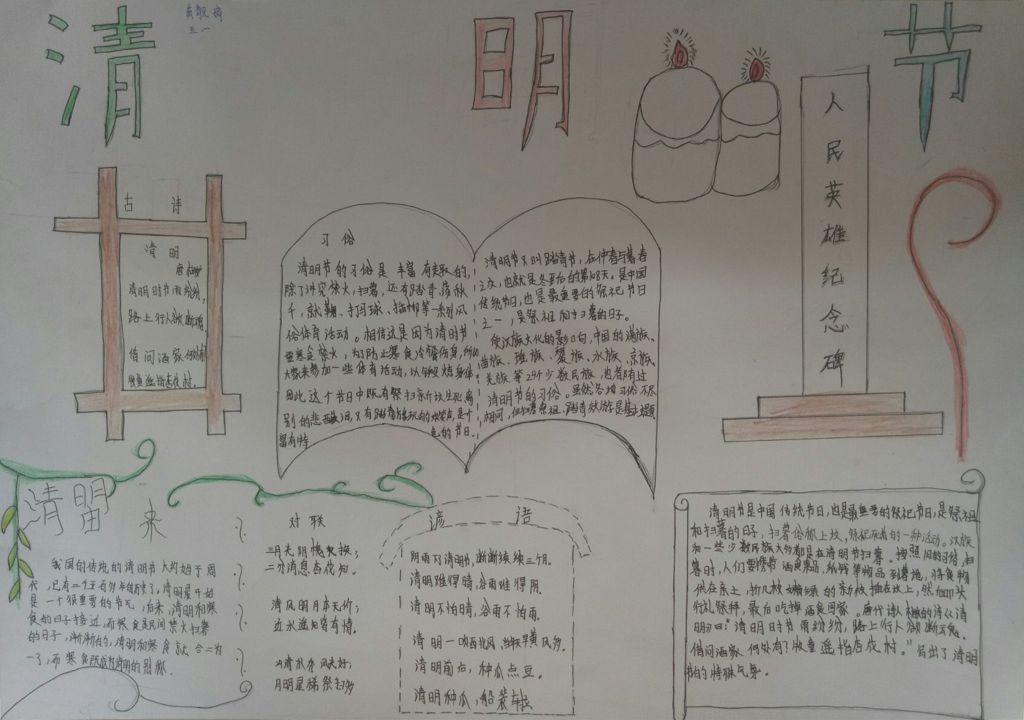 清
明
节
三一
人民英雄纪念碑
古诗
清明
清明时节雨纷纷,
路上行人欲断魂。
借问酒家何处
牧童遥指杏花村。
习俗
清明节的习俗是丰富有趣的,
除了讲究禁火,扫墓,还有踏青,荡秋
千,蹴鞠、打马球、插柳等一系列风
俗体育活动。相传这是因为清明节
要寒食禁火,为了防止寒食冷餐伤身,所以
大家来参加一些体育活动,以锻炼身体。
因此,这个节日中既有祭扫新坟生死离
别的悲酸泪,又有踏青游玩的欢笑声,是个
富有特色的节日。
清明节又叫踏青节,在仲春与暮春
之交,也就是冬至后的第108天。是中国
传统节日,也是最重要的祭祀节日
之一,是祭祖和扫墓的日子。
受汉族文化的影响,中国的满族、
苗族、瑶族、黎族、水族、京族、
羌族等24个少数民族,也都有过
清明节的习俗。虽然各地习俗不尽
相同,但扫墓祭祖、踏青郊游是基本主题
清明 来
我国的传统的清明节大约始于周
代,已有二千五百多年的历史了,清明最开始
是一个很重要的节气,后来,清明和寒
食的日子接近,而寒食是民间禁火扫墓
的日子,渐渐的,清明和寒食就合二为
一了,而寒食既成为清明的别称
对联
三月光阴槐火换;
二分消息杏花知。
清风明月本无价;
近水遥山皆有情。
山清水秀风光好;
月明星稀祭扫多
谚语
阴雨下清明,断断续续三个月。
清明难得晴,谷雨难得阴
清明不怕晴,谷雨不怕雨。
清明一吹西北风,当年黄风多。
清明前后,种瓜点豆。
清明种瓜,船装车拉
清明节是中国传统节日,也是最重要的祭祀节日,是祭祖
和扫墓的日子,扫墓俗称上坟,祭祀死者的一种活动。汉族
和一些少数民族大多都是在清明节扫墓。按照旧的习俗,扫
墓时,人们要携带酒食果品,纸钱等物品到墓地,将食物
供在亲上,折几枝嫩绿的新枝插在坟上,然后叩头
行礼祭拜,最后吃掉酒食回家。唐代诗人杜牧的诗《清
明》曰:“清明时节雨纷纷,路上行人欲断魂。
借问酒家何处有?牧童遥指杏花村。”写出了清明
节的特殊气氛。